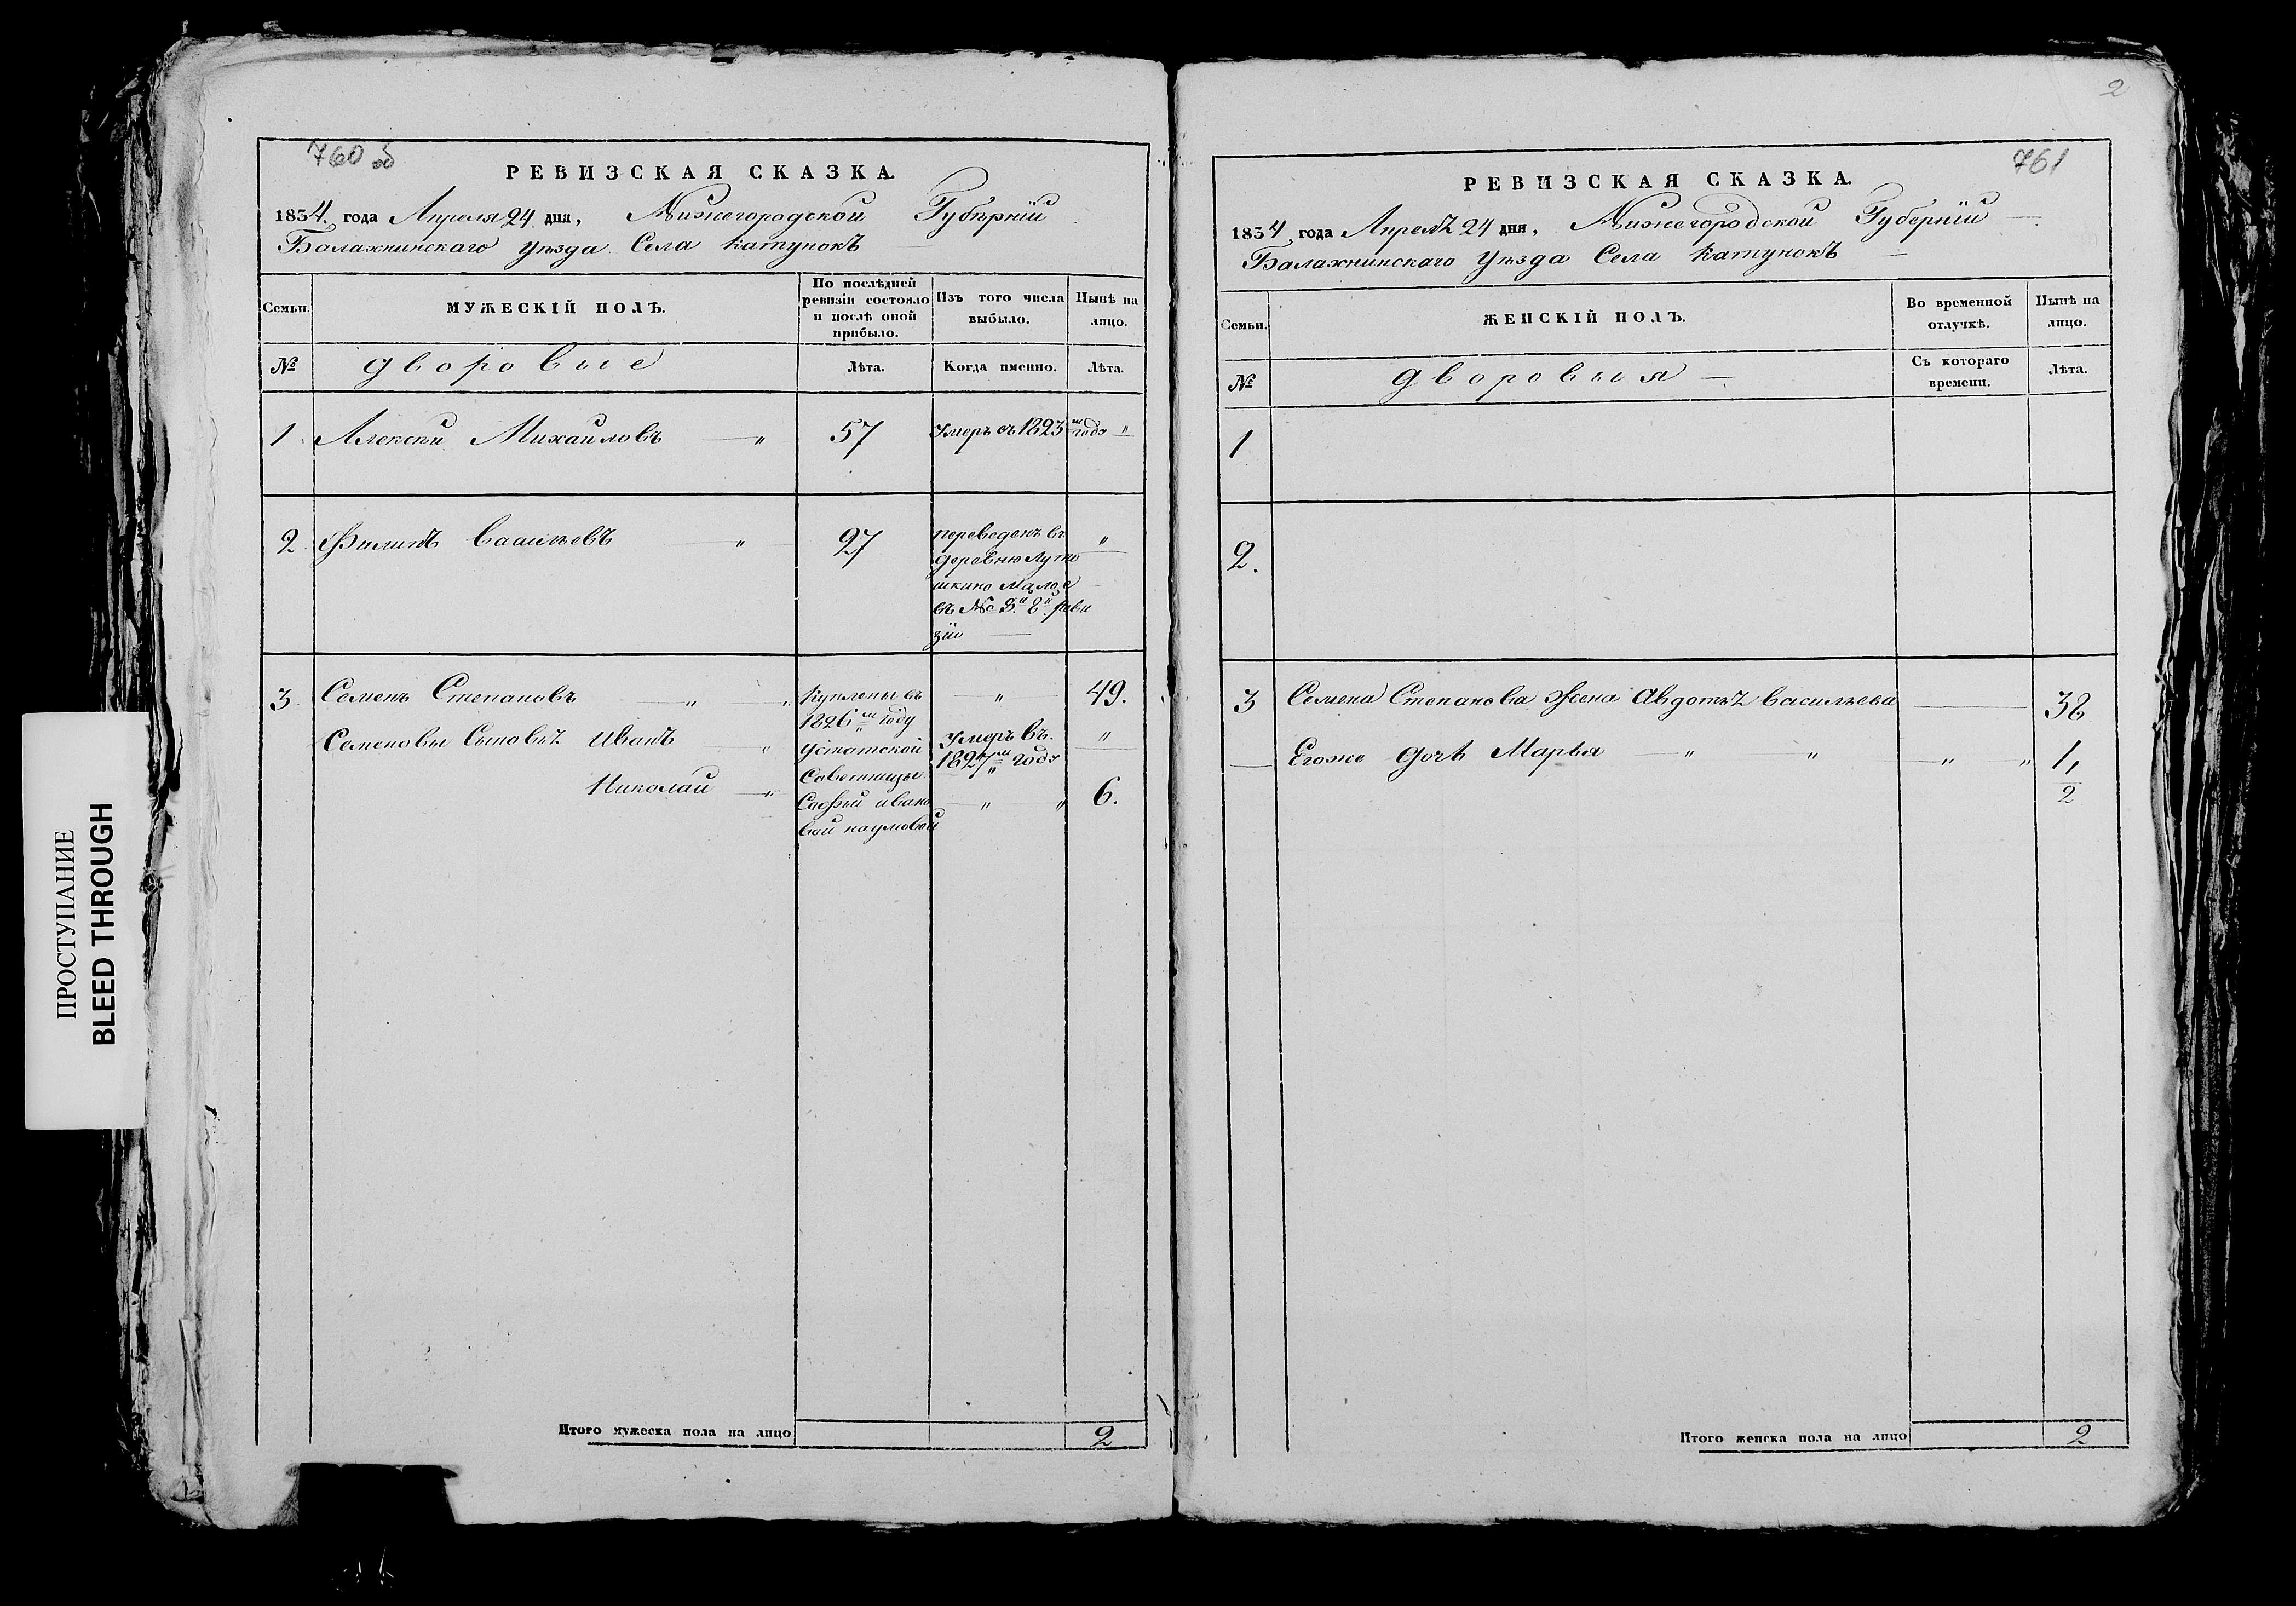 760 об
РЕВИЗСКАЯ СКАЗКА.
1834. года Апреля 24 дня, Нижегородской Губѣрнiи
Балахнинскаго уѣзда Села катунокъ
Семьи. МУЖЕСКІЙ ПОЛЪ. По послѣдней ревизіи состояло и послѣ оной прибыло. Изъ того числа выбыло. Нынѣ на лицо.
№ дворовые Лѣта. Когда именно. Лѣта.
1 Алексѣй Михайловъ " 57 Умеръ въ 1823 м годѣ "
2 Филипъ Васильевъ " 27 переведенъ въ "
деревню Луто
шкино малое
въ № 3й 8й реви
зiи
3 Семенъ Степановъ " " Куплены въ " 49.
1826м году
Семеновы Сыновья Иванъ " Устатской Умеръ въ. "
1827м годѣ
Советницы
Николай " Софьи ивано " " 6.
вой наумовой
Итого мужеска пола на лицо 2
2
761
РЕВИЗСКАЯ СКАЗКА.
1834 года Апреля 24 дня, Нижегородской Губернiи
Балахнинскаго Уѣзда Села Катунокъ
Семьи. ЖЕНСКІЙ ПОЛЪ. Во временной отлучкѣ. Нынѣ на лицо.
№ дворовыя Съ котораго времени. Лѣта.
1
2.
3 Семена Степанова Жена Авдотья васильева 38
Егоже дочь Марья " " " " 1/2
Итого женска пола на лицо 2
ПРОСТУПАНИЕ
BLEED THROUGH